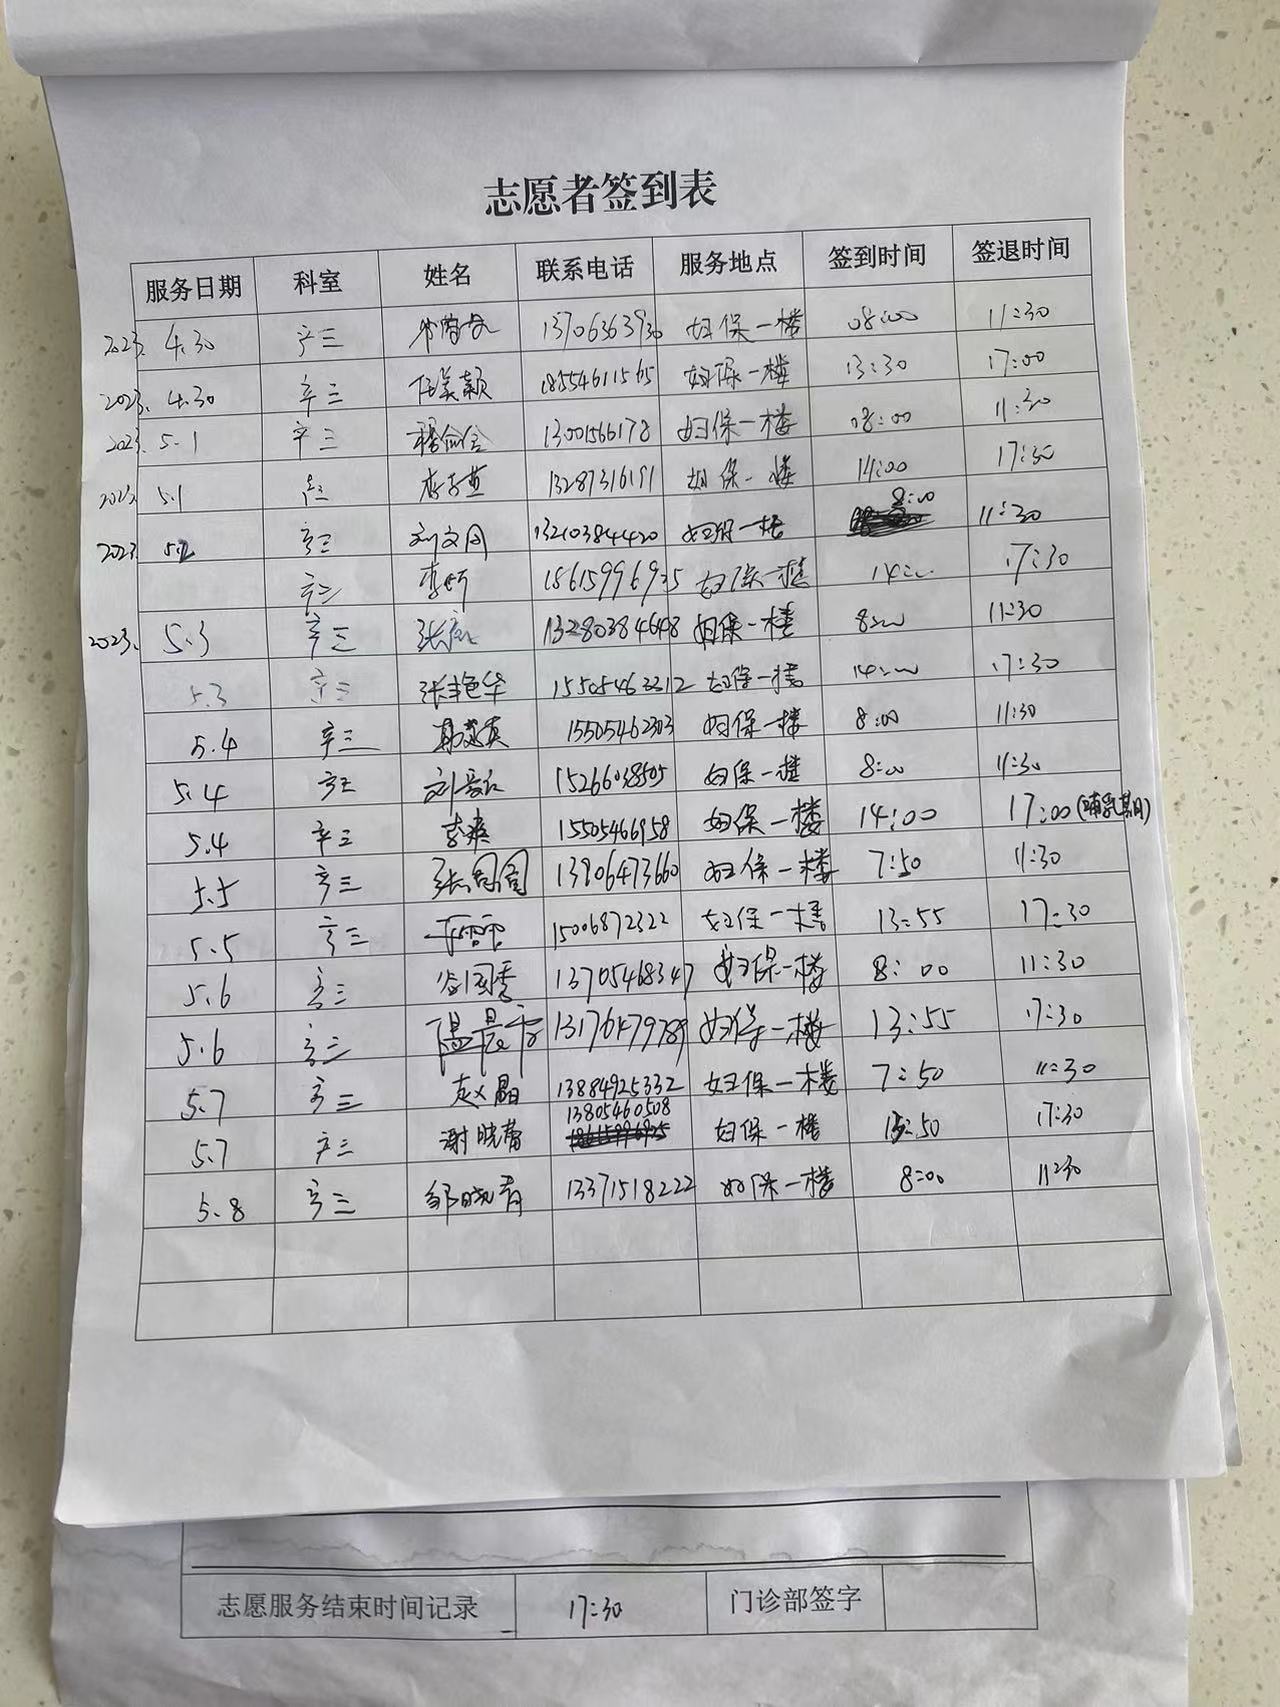 志愿者签到表
服务日期 科室 姓名 联系电话 服务地点 签到时间 签退时间
2023. 4.30 产三 13706363930 妇保一楼 08:00 11:30
2023. 4.30 产三 任美颖 18554611565 妇保一楼 13:30 17:00
2023. 5.1 产三 13001566178 妇保一楼 08:00 11:30
5.1 产三 13287316191 妇保一楼 14:00 17:30
2023 5.2 产三 刘文同 132103844420 妇保一楼 8:00 11:30
产三 李娇 18615996925 妇保一楼 14:00 17:30
2023. 5.3 产三 13280384648 妇保一楼 8:00 11:30
5.3 产三 张艳华 15505463312 妇保一楼 14:00 17:30
5.4 产三 15505462303 妇保一楼 8:00 11:30
5.4 产三 15266038505 妇保一楼 8:00 11:30
5.4 产三 15505466958 妇保一楼 14:00 17:00(哺乳期)
5.5 产三 张圆圆 13906473660 妇保一楼 7:50 11:30
5.5 产三 15006872322 妇保一楼 13:55 17:30
5.6 产三 13705468347 妇保一楼 8:00 11:30
5.6 产三 13176479789 妇保一楼 13:55 17:30
5.7 产三 赵晶 13884925332 妇保一楼 7:50 11:30
5.7 产三 谢晓蕾 13805460508 妇保一楼 13:50 17:30
5.8 产三 邹晓青 13371518222 妇保一楼 8:00 11:30
志愿服务结束时间记录 17:30 门诊部签字